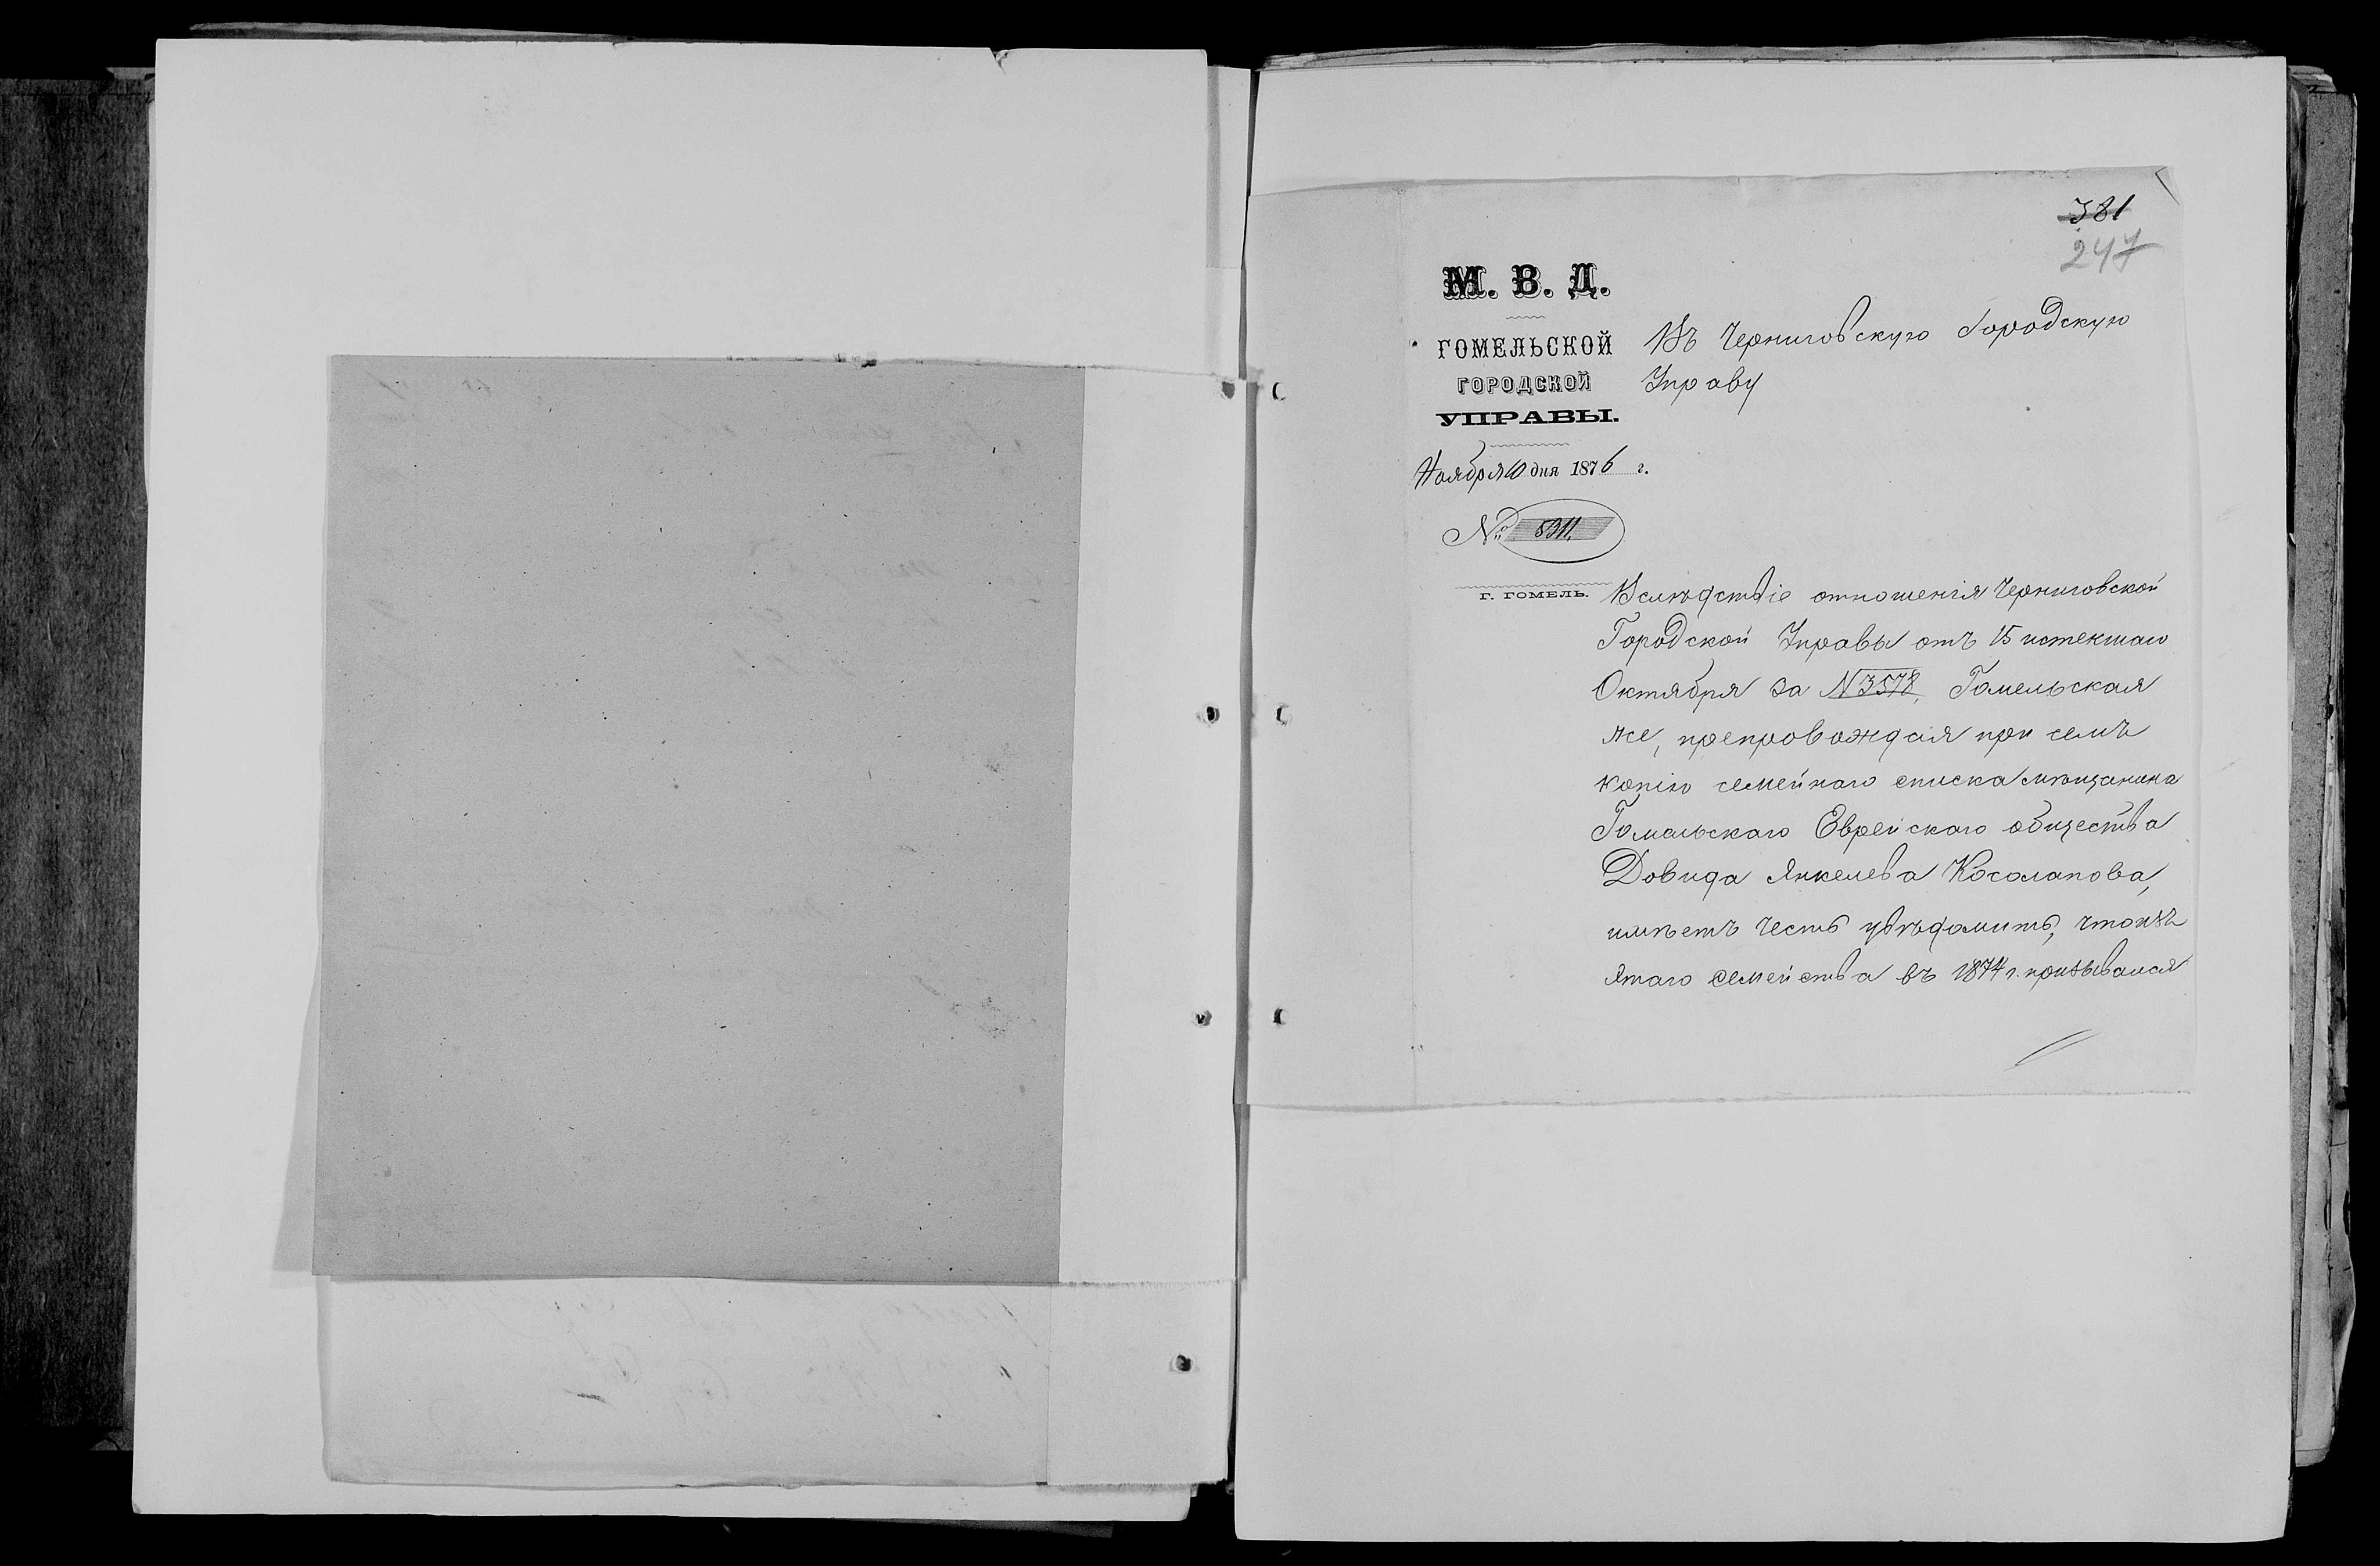 381
247
М. В. Д.
ГОМЕЛЬСКОЙ
ГОРОДСКОЙ
УПРАВЫ.
Ноября 10 дня 1876 г.
№ 5311.
г. ГОМЕЛЬ.
Въ Черниговскую Городскую
Управу
Вслѣдствіе отношенія Черниговской
Городской Управы отъ 15 истекшаго
Октября за N 3578, Гомельская
же, препровождая при семъ
копію семейнаго списка мѣщанина
Гомельскаго Еврейскаго общества
Довида Янкелева Косолапова,
имѣетъ честь увѣдомить, что изъ
этаго семейства въ 1874 г. призывался